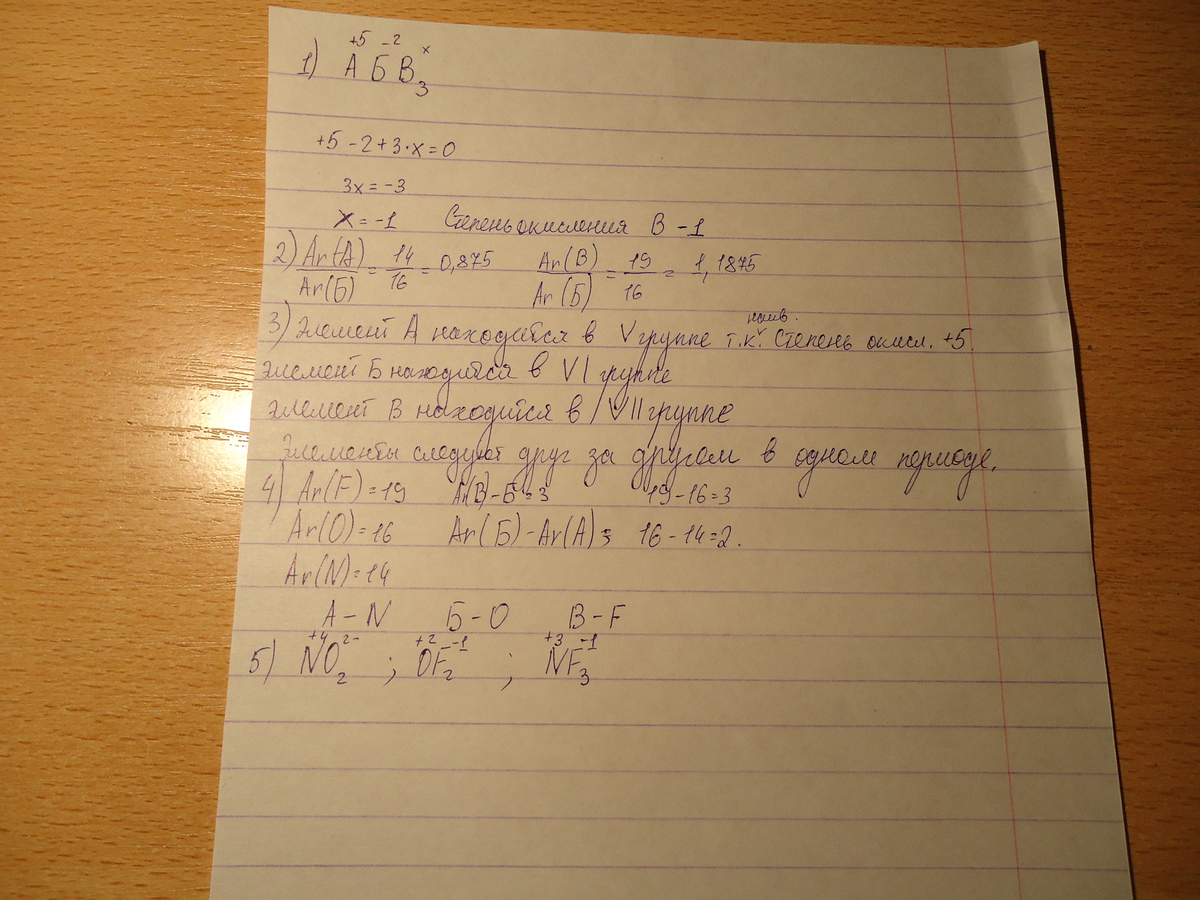 +5 -2 x
1) А Б В3
+5 - 2 + 3·x = 0
3x = -3
x = -1 Степень окисления В -1
2) Ar(А)/Ar(Б) = 14/16 = 0,875 Ar(В)/Ar(Б) = 19/16 = 1,1875
наив.
3) Элемент А находится в V группе т.к. степень окисл. +5.
элемент Б находится в VI группе
элемент В находится в VII группе
Элементы следуют друг за другом в одном периоде.
4) Ar(F) = 19 Ar(В) - Б = 3 19 - 16 = 3
Ar(O) = 16 Ar(Б) - Ar(А) = 16 - 14 = 2.
Ar(N) = 14
А - N Б - O В - F
+4 2- +2 -1 +3 -1
5) NO2 ; OF2 ; NF3